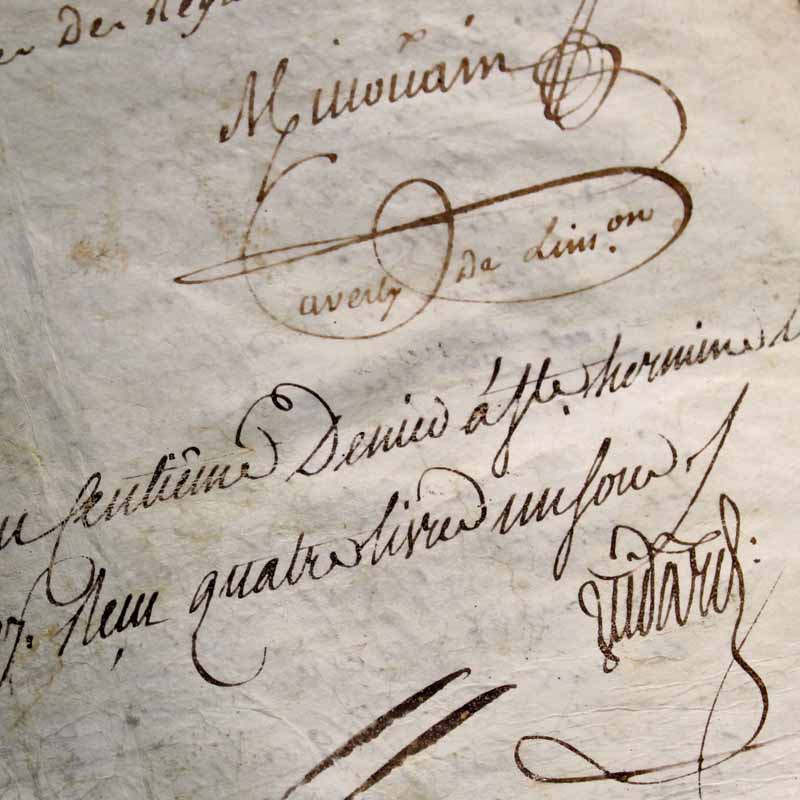 Der Reg
Minoüain
averty De Linson
Centiême Denier à Ste hermine l
7. Reçu quatre livre un sou
Vidard